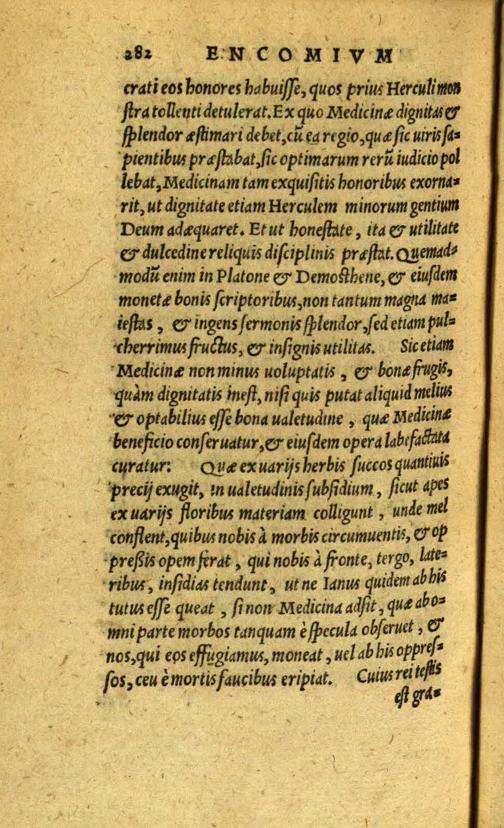 282 ENCOMIVM
crati eos honores habuisse, quos prius Herculi mon
stra tollenti detulerat. Ex quo Medicinæ dignitas &
splendor æstimari debet, cū ea regio, quæ sic uiris sa=
pientibus præstabat, sic optimarum rerū iudicio pol
lebat, Medicinam tam exquisitis honoribus exorna=
rit, ut dignitate etiam Herculem minorum gentium
Deum adæquaret. Et ut honestate, ita & utilitate
& dulcedine reliquis disciplinis præstat. Quemad=
modū enim in Platone & Demosthene, & eiusdem
monetæ bonis scriptoribus, non tantum magna ma=
iestas, & ingens sermonis splendor, sed etiam pul=
cherrimus fructus, & insignis utilitas. Sic etiam
Medicinæ non minus uoluptatis, & bonæ frugis,
quàm dignitatis inest, nisi quis putat aliquid melius
& optabilius esse bona ualetudine, quæ Medicinæ
beneficio conseruatur, & eiusdem opera labefactata
curatur: Quæ ex uarijs herbis succos quantiuis
precij exugit, in ualetudinis subsidium, sicut apes
ex uarijs floribus materiam colligunt, unde mel
conflent, quibus nobis à morbis circumuentis, & op
pressis opem ferat, qui nobis à fronte, tergo, late=
ribus, insidias tendunt, ut ne Ianus quidem ab his
tutus esse queat, si non Medicina adsit, quæ ab o=
mni parte morbos tanquam è specula obseruet, &
nos, qui eos effugiamus, moneat, uel ab his oppres=
sos, ceu è mortis faucibus eripiat. Cuius rei testis
est gra=